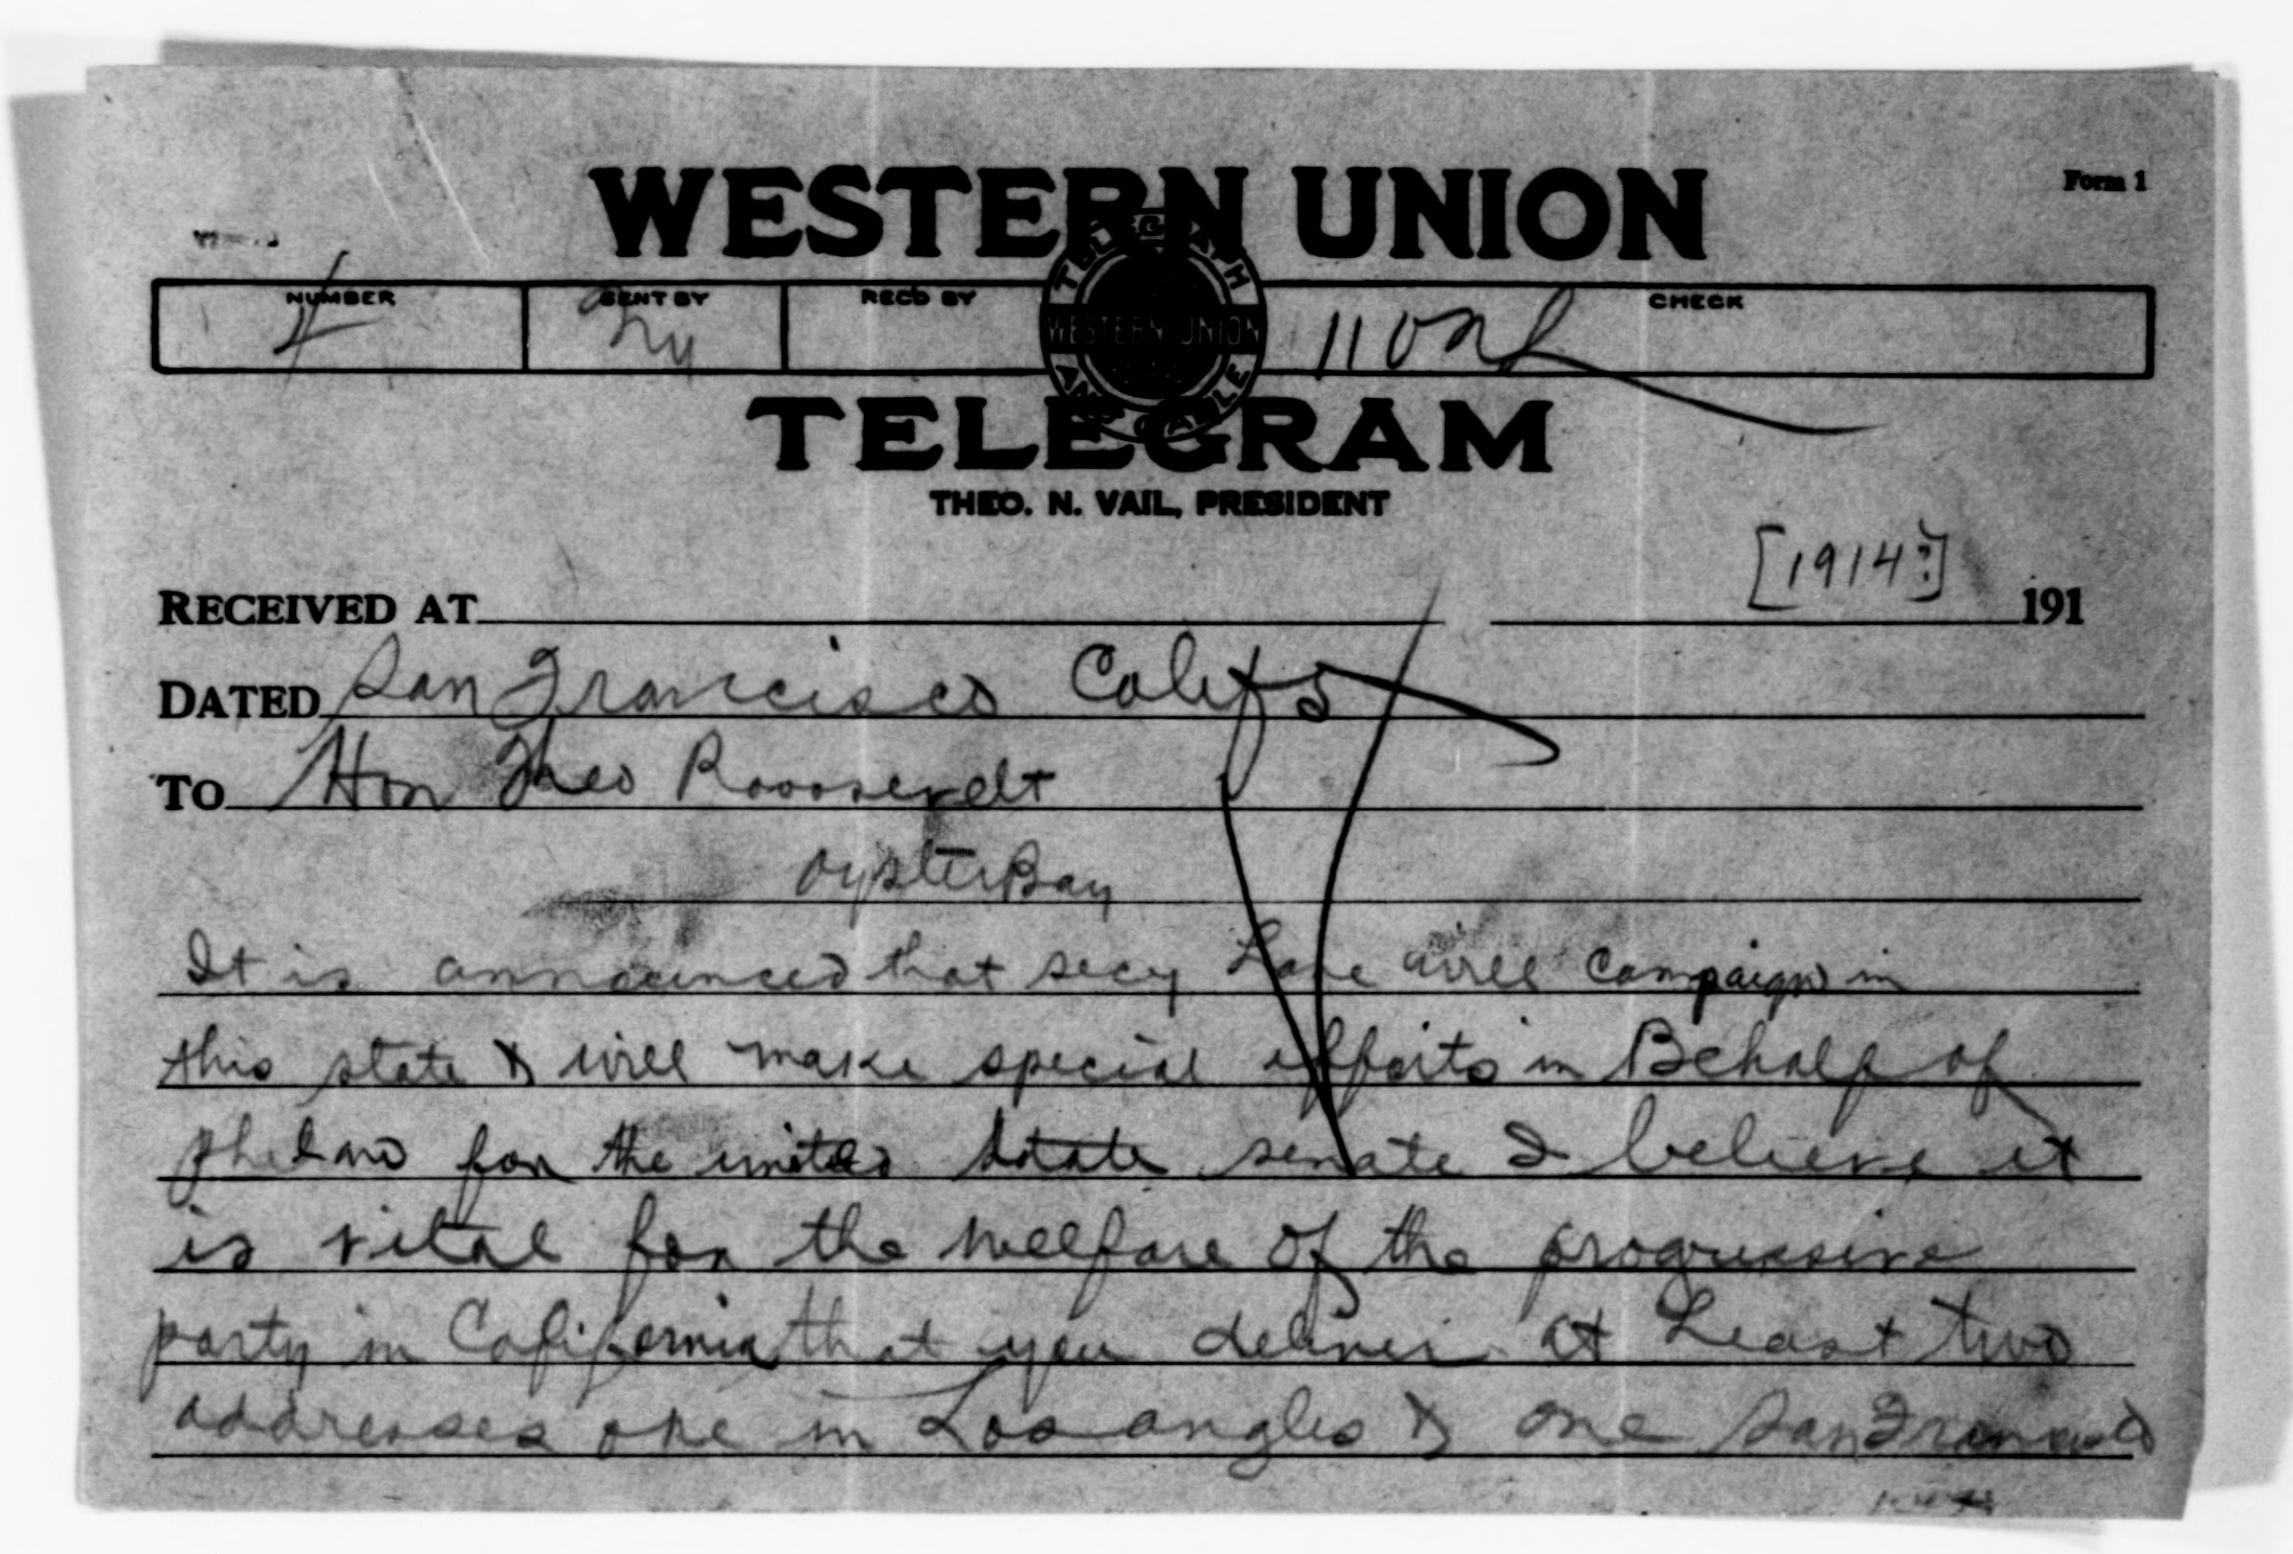 WESTERN UNION
Form 1
NUMBER SENT BY REC'D BY CHECK
TELEGRAPH AND CABLE
WESTERN UNION
TELEGRAM
THEO. N. VAIL, PRESIDENT
[1914?]
RECEIVED AT 191
DATED San Francisco Calif 5
TO Hon Theo Roosevelt
Oyster Bay
It is announced that secy Lane will campaign in
this state & will make special efforts in Behalf of
phelan for the united state senate I believe it
is vital for the welfare of the progressive
party in California that you deliver at Least two
addresses one in Los angles & one San Francisco